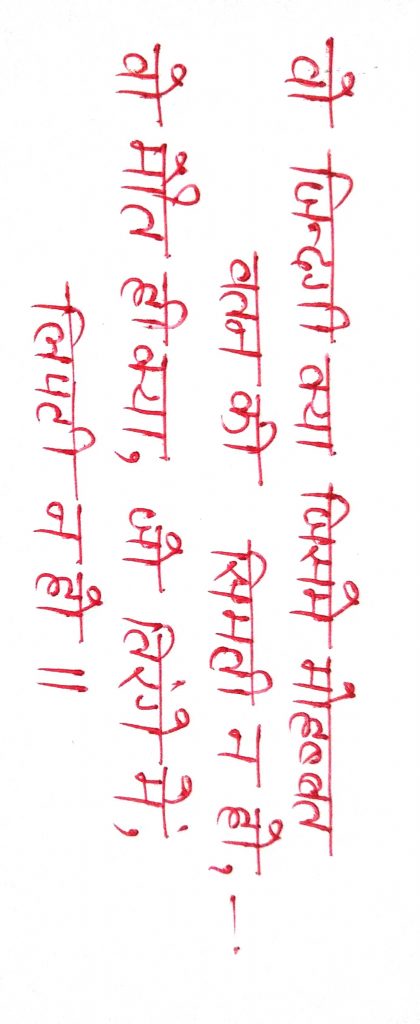 वो जिन्दगी क्या जिसमे मोहब्बत
वतन की सिमटी न हो, –.
वो मौत ही क्या, जो तिरंगे में,
लिपटी न हो ॥